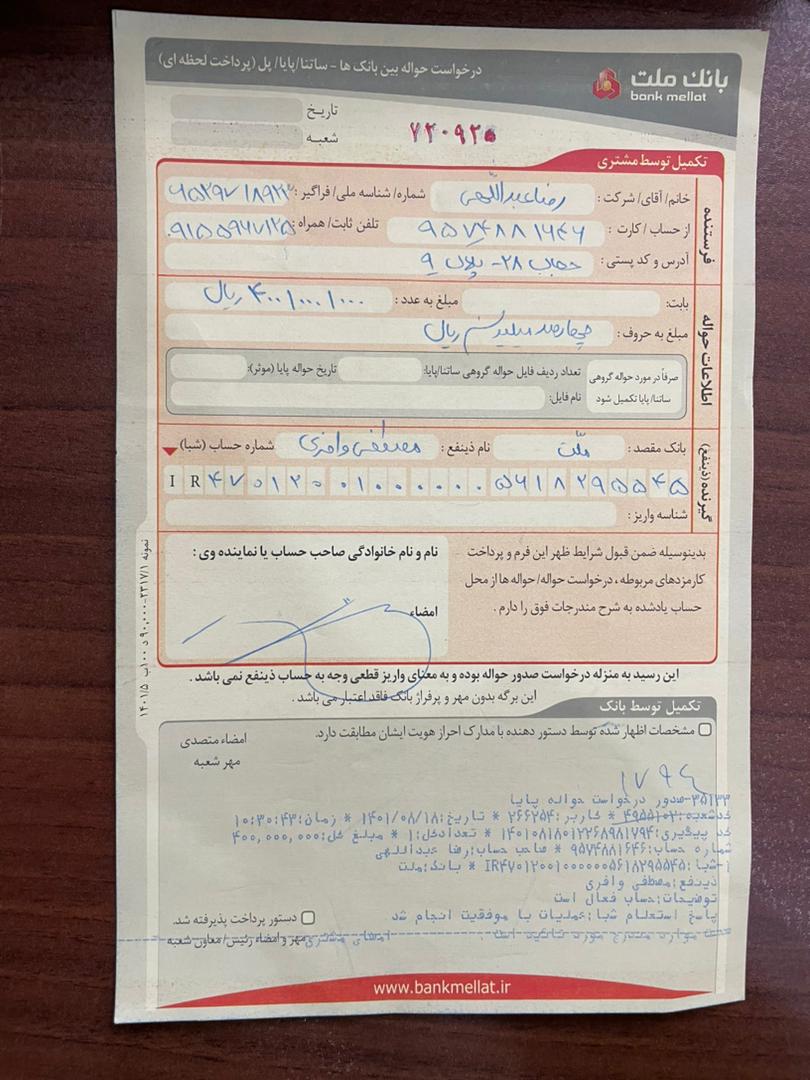 درخواست حواله بین بانک ها - ساتنا/پایا/ پل (پرداخت لحظه ای)
بانک ملت
bank mellat
تاریخ
شعبه
۷۲۰۹۲۵
تکمیل توسط مشتری
فرستنده
خانم/ آقای/ شرکت: رضا عبداللهی شماره/ شناسه ملی/ فراگیر:
از حساب / کارت: ۹۵۷۴۸۸۱۶۴۶ تلفن ثابت/ همراه: ۰۹۱۵۵۹۶۷۱۲۵
آدرس و کد پستی: ۲۸- پلاک ۹
اطلاعات حواله
بابت: مبلغ به عدد: ۴۰۰/۰۰۰/۰۰۰ ریال
مبلغ به حروف: چهارصد میلیون ریال
صرفاً در مورد حواله گروهی ساتنا/پایا تکمیل شود
تعداد ردیف فایل حواله گروهی ساتنا/پایا: تاریخ حواله پایا (موثر):
نام فایل:
گیرنده (ذینفع)
بانک مقصد: ملت نام ذینفع: مصطفی وافری شماره حساب (شبا)
IR ۴۷۰۱۲۰۰۱۰۰۰۰۰۰۵۶۱۸۲۹۵۵۴۵
شناسه واریز:
بدینوسیله ضمن قبول شرایط ظهر این فرم و پرداخت
کارمزدهای مربوطه، درخواست حواله/ حواله ها از محل
حساب یادشده به شرح مندرجات فوق را دارم.
نام و نام خانوادگی صاحب حساب یا نماینده وی:
امضاء
این رسید به منزله درخواست صدور حواله بوده و به معنای واریز قطعی وجه به حساب ذینفع نمی باشد.
این برگه بدون مهر و پرفراژ بانک فاقد اعتبار می باشد.
تکمیل توسط بانک
مشخصات اظهار شده توسط دستور دهنده با مدارک احراز هویت ایشان مطابقت دارد.
امضاء متصدی
مهر شعبه
۱۷۹۴
۳۵۱۳۳-صدور درخواست حواله پایا
کدشعبه:۴۹۵۵۱۰۲ * کاربر:۲۶۶۲۵۴ * تاریخ:۱۴۰۱/۰۸/۱۸ * زمان:۱۰:۳۰:۴۳
کد پیگیری:۱۴۰۱۰۸۱۸۰۱۲۲۶۸۹۸۱۷۹۴ * تعدادکل:۱ * مبلغ کل:۴۰۰,۰۰۰,۰۰۰
شماره حساب:۹۵۷۴۸۸۱۶۴۶ * صاحب حساب:رضا عبداللهی
۱-شبا:IR۴۷۰۱۲۰۰۱۰۰۰۰۰۰۵۶۱۸۲۹۵۵۴۵ * بانک:ملت
ذینفع:مصطفی وافری
توضیحات:حساب فعال است
پاسخ استعلام شبا:عملیات با موفقیت انجام شد
موارد مندرج مورد تائید است . امضای مشتری
دستور پرداخت پذیرفته شد.
مهر و امضاء رئیس/ معاون شعبه
www.bankmellat.ir